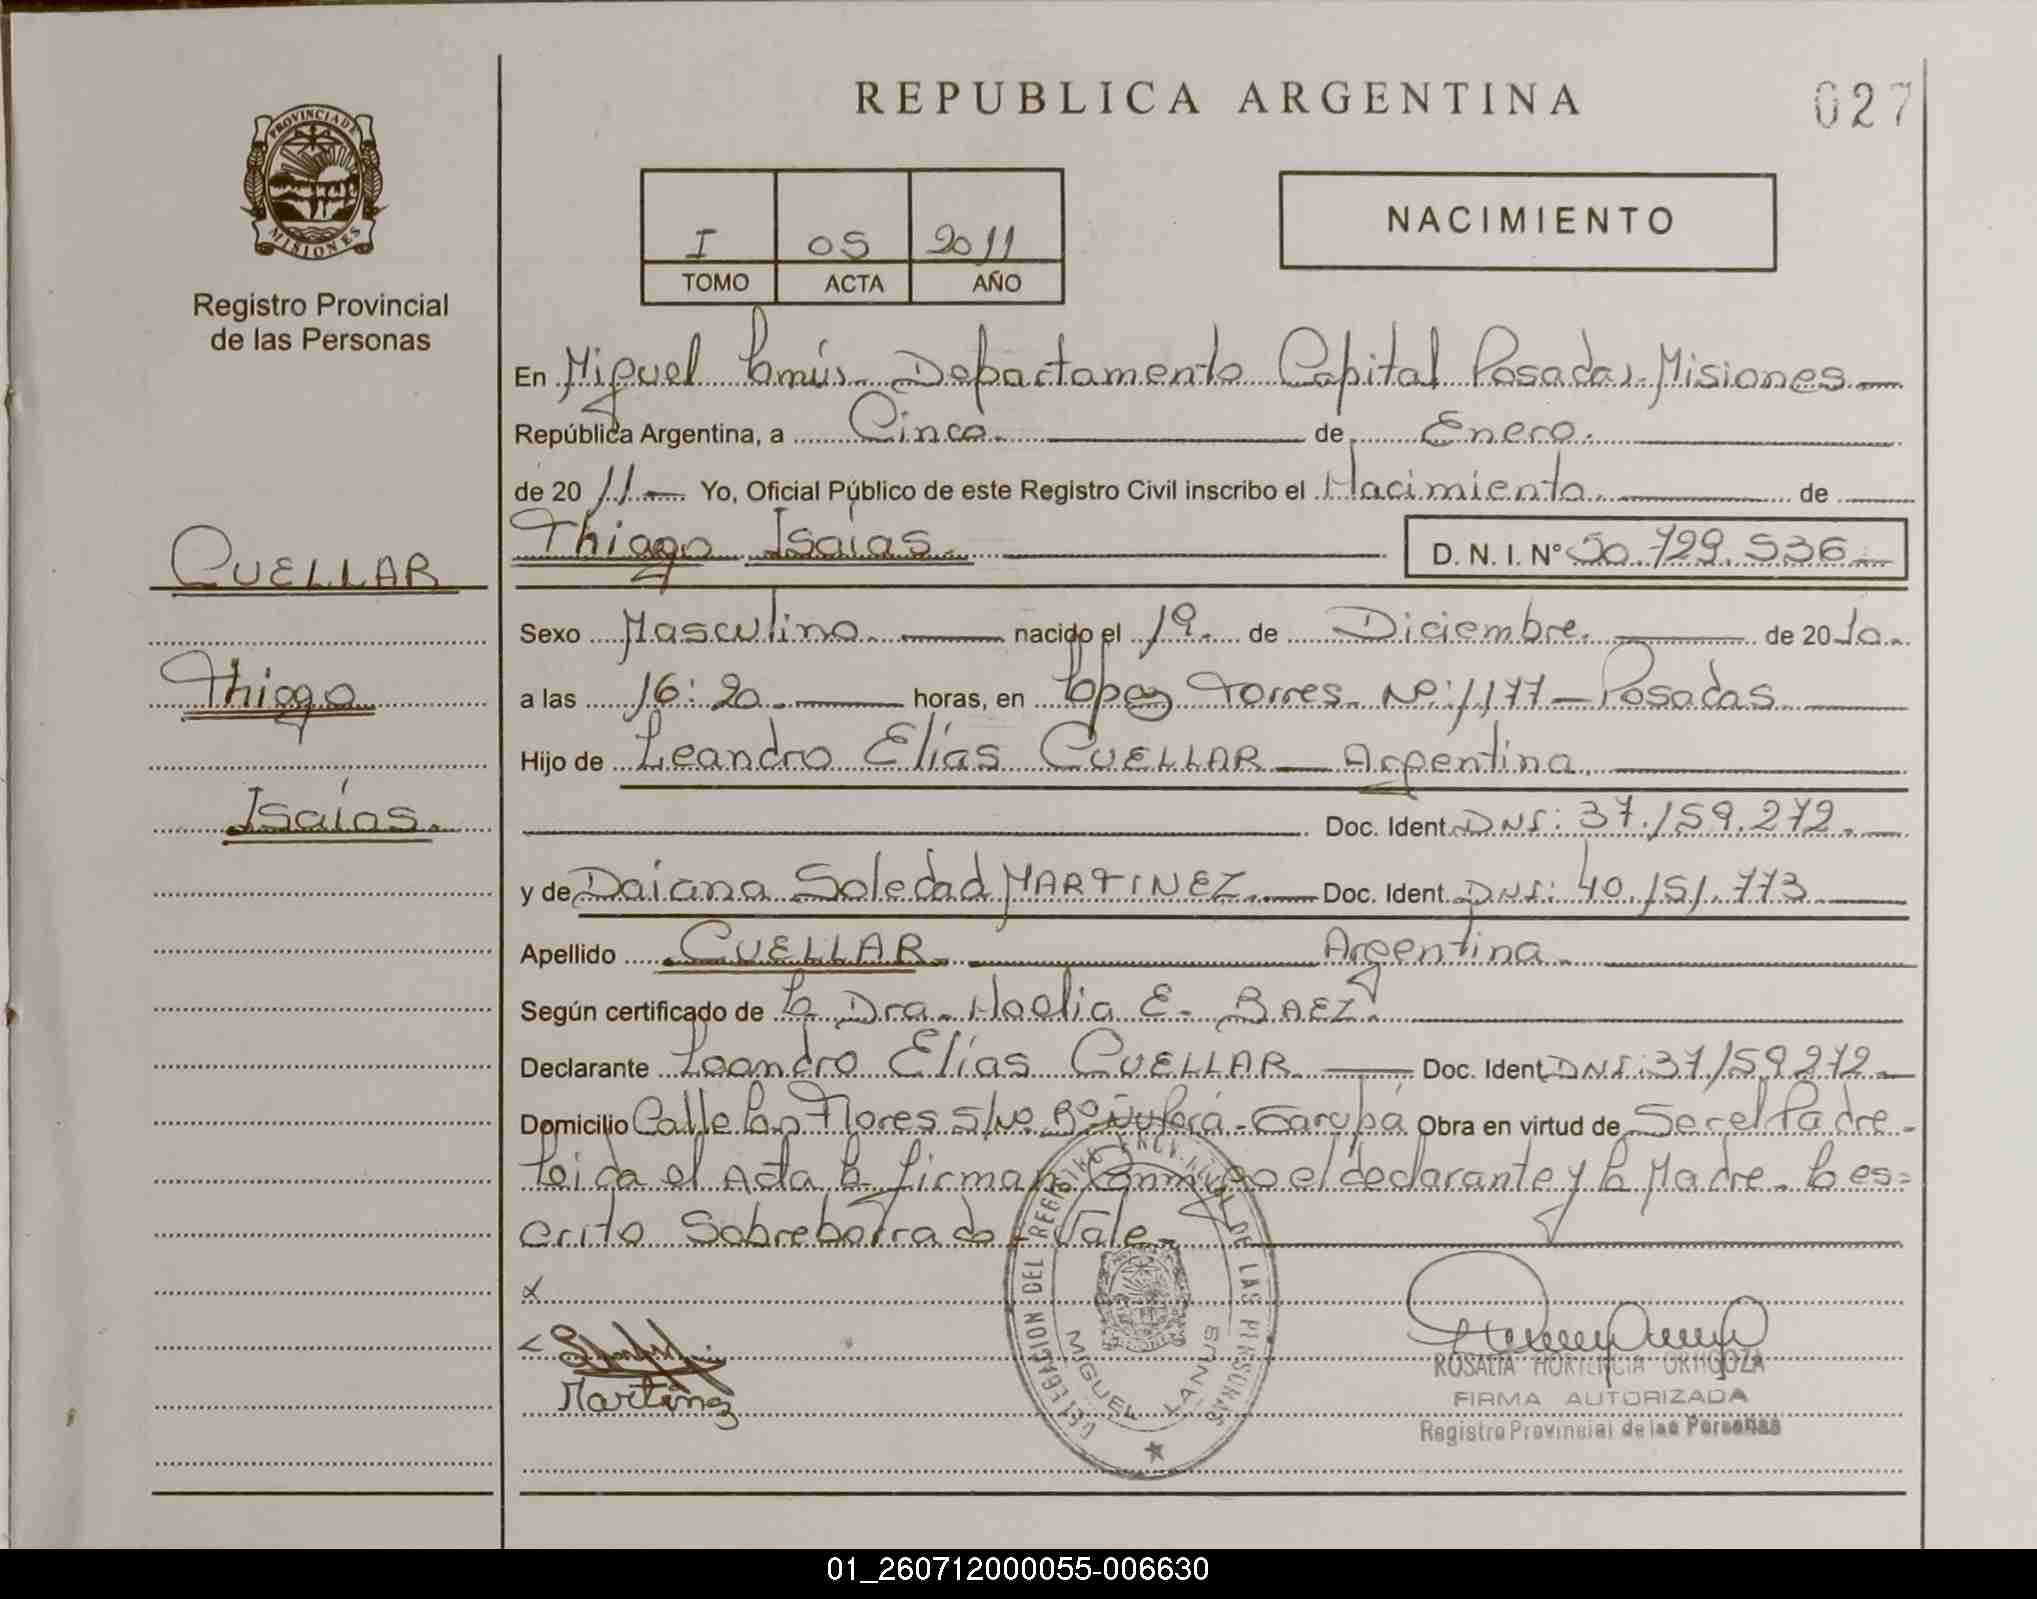 REPUBLICA ARGENTINA
027
PROVINCIA DE
MISIONES
Registro Provincial
de las Personas
I 05 2011
TOMO ACTA AÑO
NACIMIENTO
En Miguel Lanús - Departamento Capital Posadas - Misiones
República Argentina, a Cinco de Enero
de 2011 Yo, Oficial Público de este Registro Civil inscribo el Nacimiento de
CUELLAR
Thiago Isaías
D. N. I. N° 50.729.536
Sexo Masculino nacido el 19 de Diciembre de 2010
Thiago
a las 16:20 horas, en Lopez Torres Nº: 1177 - Posadas
Hijo de Leandro Elías CUELLAR - Argentina
Isaías.
Doc. Ident. DNI: 37.159.272.
y de Daiana Soledad MARTINEZ Doc. Ident. DNI: 40.151.773
Apellido CUELLAR Argentina
Según certificado de la Dra. Noelia E. BAEZ
Declarante Leandro Elías CUELLAR Doc. Ident. DNI: 37159272
Domicilio Calle Las Flores S/Nº Bº Ñu Porá - Garupá Obra en virtud de Ser el Padre -
Leida el Acta la firman Conmigo el declarante y la Madre. Lo es=
crito Sobreborrado - Vale
x
Martinez
DELEGACION DEL REGISTRO PROVINCIAL DE LAS PERSONAS
MIGUEL LANUS
ROSALIA HORTENCIA ORTIGOZA
FIRMA AUTORIZADA
Registro Provincial de las Personas
01_260712000055-006630